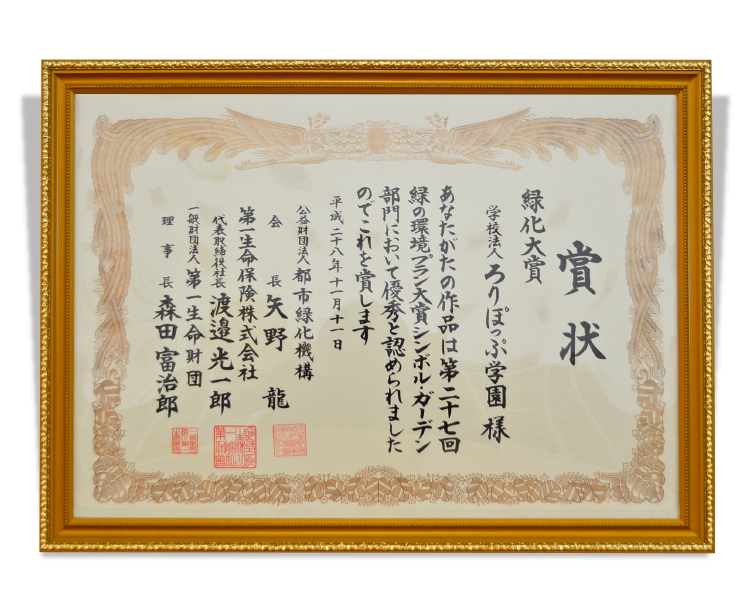 賞状
緑化大賞
学校法人 ろりぽっぷ学園 様
あなたがたの作品は第二十七回
緑の環境プラン大賞シンボル・ガーデン
部門において優秀と認められました
のでこれを賞します
平成二十八年十一月十一日
公益財団法人 都市緑化機構
会長 矢野 龍
第一生命保険株式会社
代表取締役社長 渡邉光一郎
一般財団法人 第一生命財団
理事長 森田富治郎